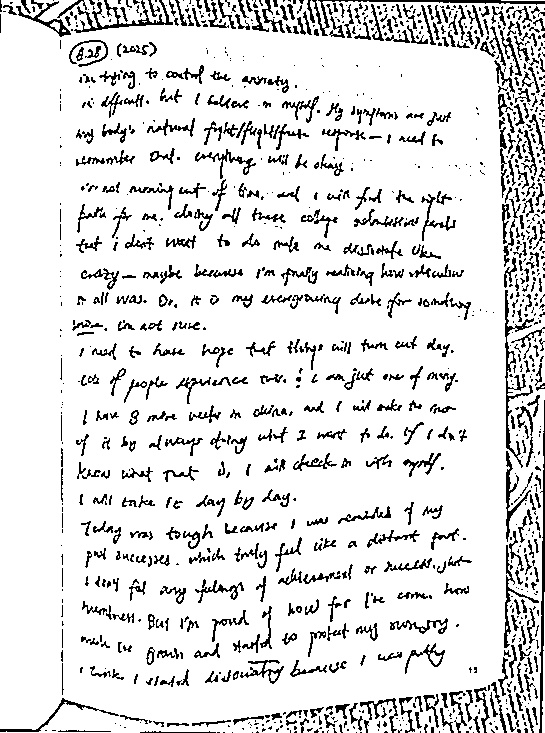 8.28 (2025)
im trying to control the anxiety.
is difficult. but I believe in myself. My symptoms are just
my body's natural fight/flight/freeze response — I need to
remember that. everything will be okay.
i'm not running out of time, and I will find the right
path for me. doing all these college admissions panels
that i don't want to do made me dissociate like
crazy — maybe because I'm finally realizing how ridiculous
it all was. Or, it is my evergrowing desire for something
more. i'm not sure.
I need to have hope that things will turn out okay.
lots of people experience this. & I am just one of many.
I have 3 more weeks in china, and I will make the most
of it by always doing what I want to do. If I don't
know what that is, I will check in with myself.
I will take it day by day.
Today was tough because I was reminded of my
past successes. which truly feel like a distant past.
I don't feel any feelings of achievement or success, just
numbness. But I'm proud of how far I've come. how
much I've grown and started to protect my own joy.
I think I started dissociating because I was putting
13